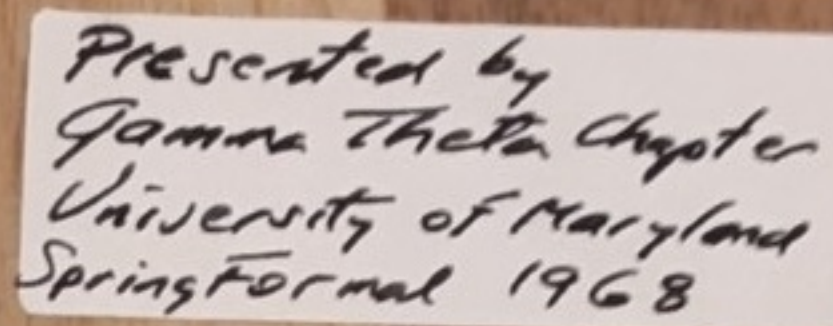 Presented by
Gamma Theta Chapter
University of Maryland
Spring Formal 1968